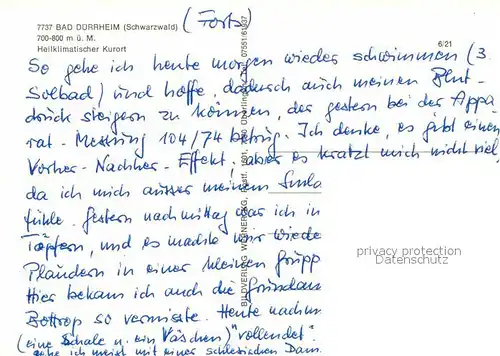 (Forts)
7737 BAD DÜRRHEIM (Schwarzwald)
700-800 m ü. M.
Heilklimatischer Kurort
6/21
So gehe ich heute morgen wieder schwimmen (3.
Solbad) und hoffe, dadurch auch meinen Blut-
druck steigern zu können, der gestern bei der Appa
rat-Messung 104/74 betrug. Ich denke, es gibt einen
Vorher-Nachher-Effekt, aber es kratzt mich nicht viel,
da ich mich ausser meinem
fühle. Gestern nachmittag war ich in
Töpfern, und es machte mir wiede
Plaudern in einer kleinen Grupp
Hier bekam ich auch die
Bottrop so vermisste. Heute nachm
(eine Schale u. ein Väschen) "vollendet".
gehe ich meist mit einer schlesischen Dam
BILDVERLAG WERNER
Überlingen, Tel. 07551/61937
privacy protection
Datenschutz